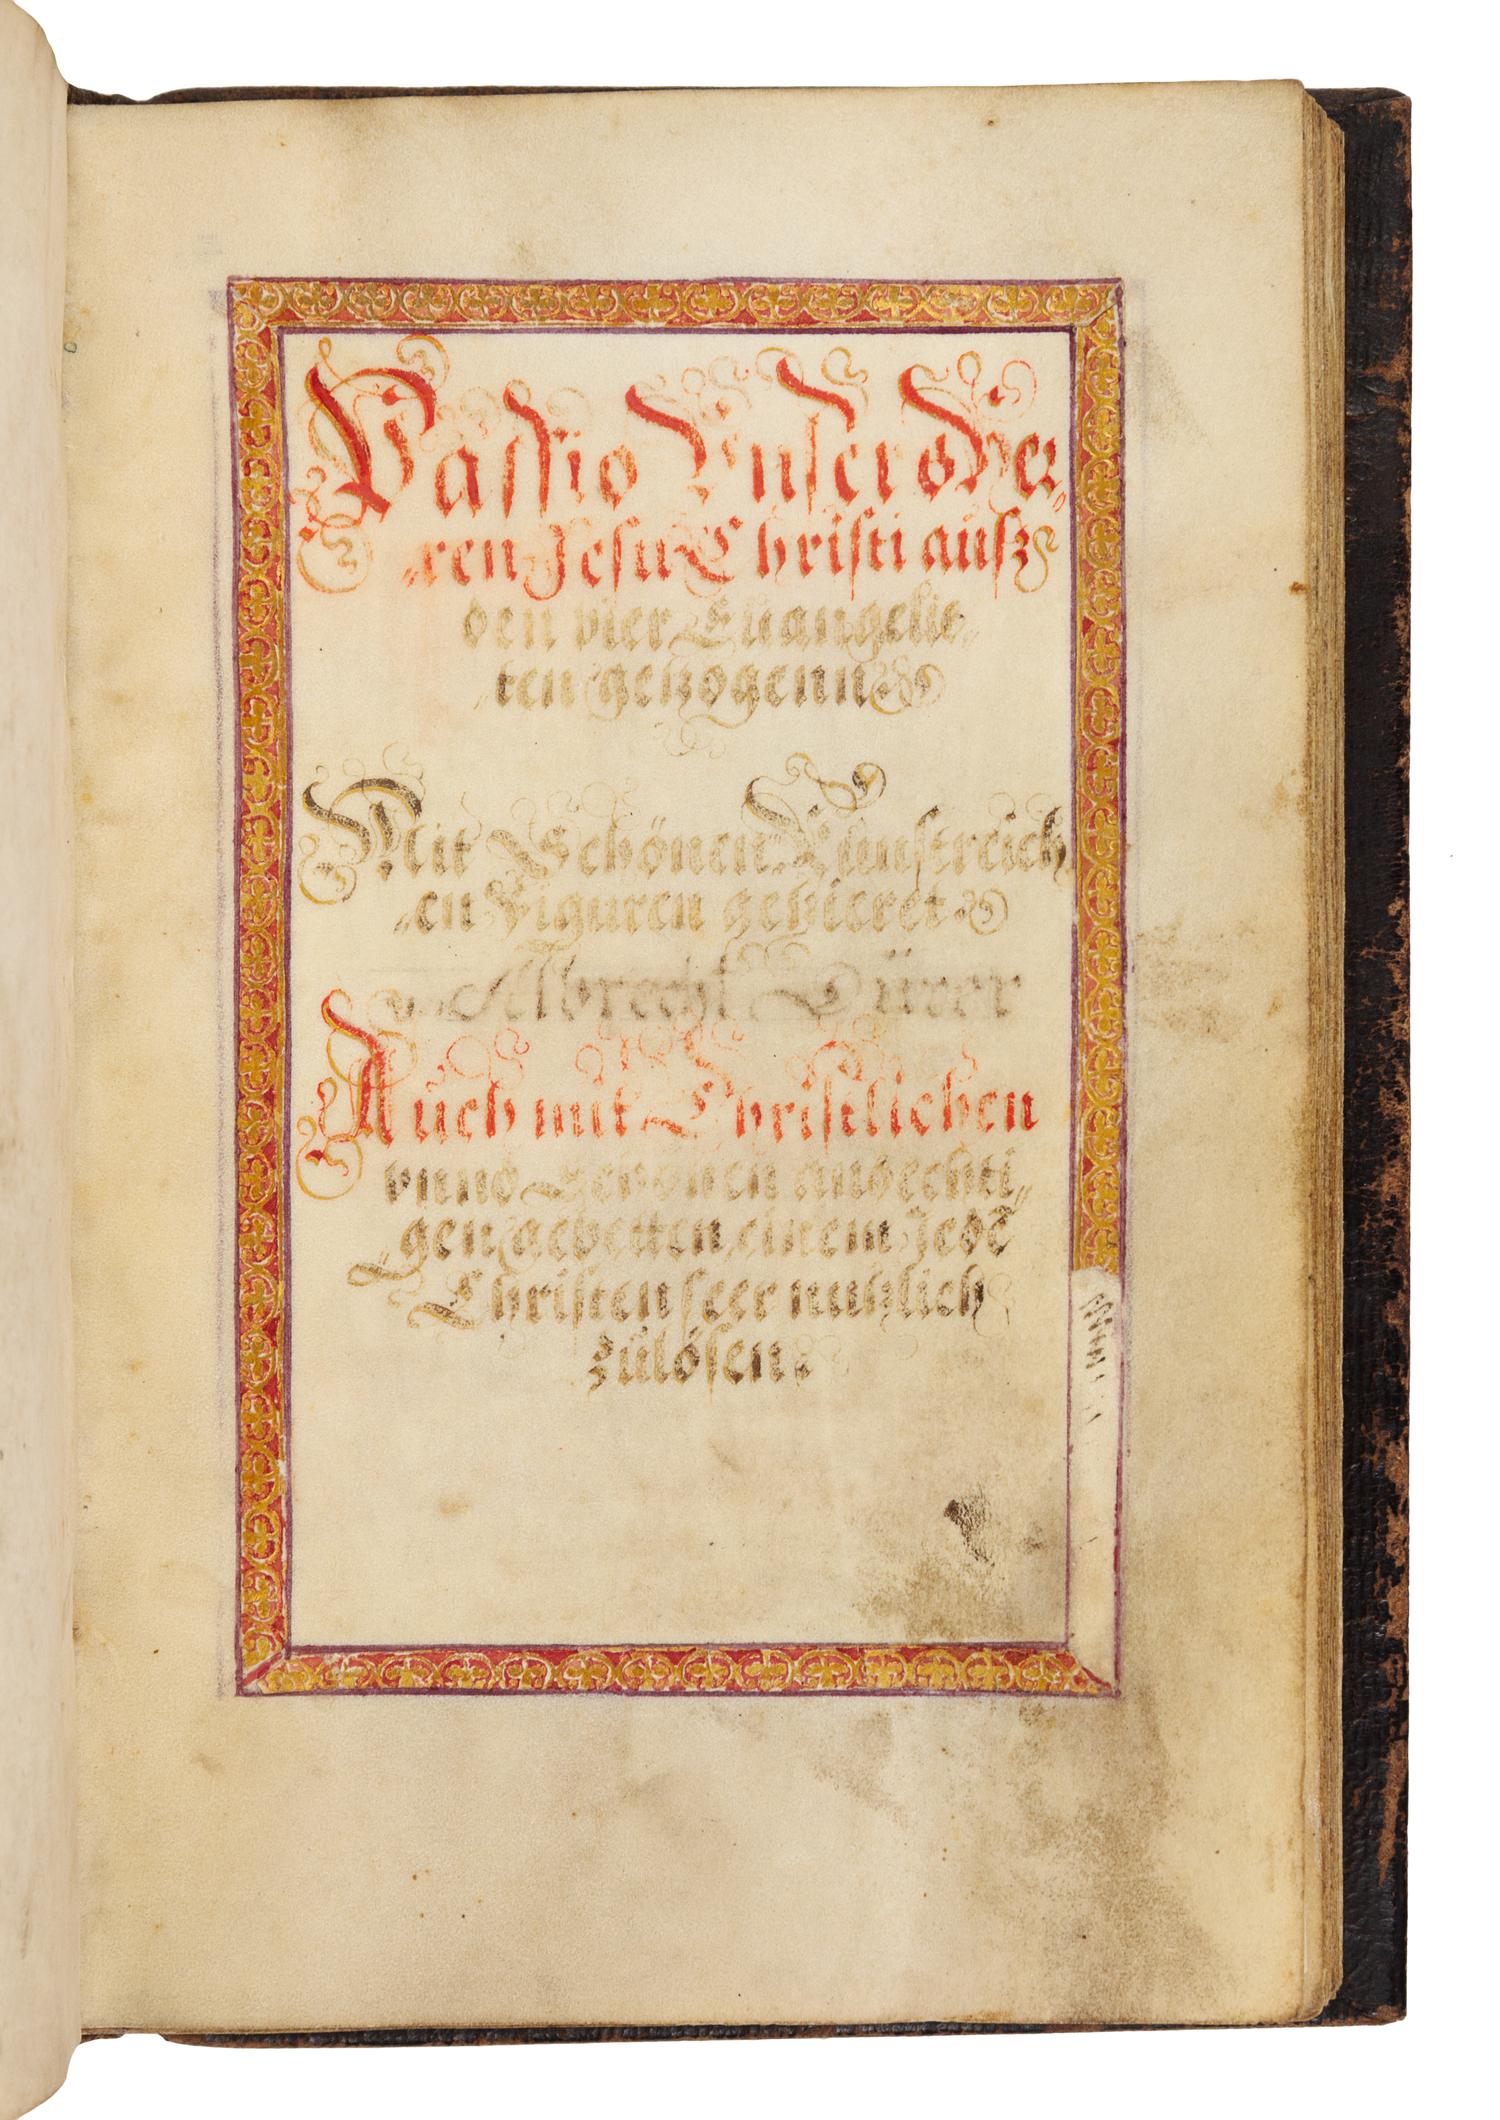 Passio Unsers Her„
„ren Jesu Christi ausz
den vier Euangelis„
„ten getzogenn
Mit Schönen Kunstreich
„en Figuren getzieret
v. Albrecht Dürer
Auch mit Christlichen
vnnd andechti„
„gen gebetten einem Jedē
Christen seer nutzlich
zulösen.